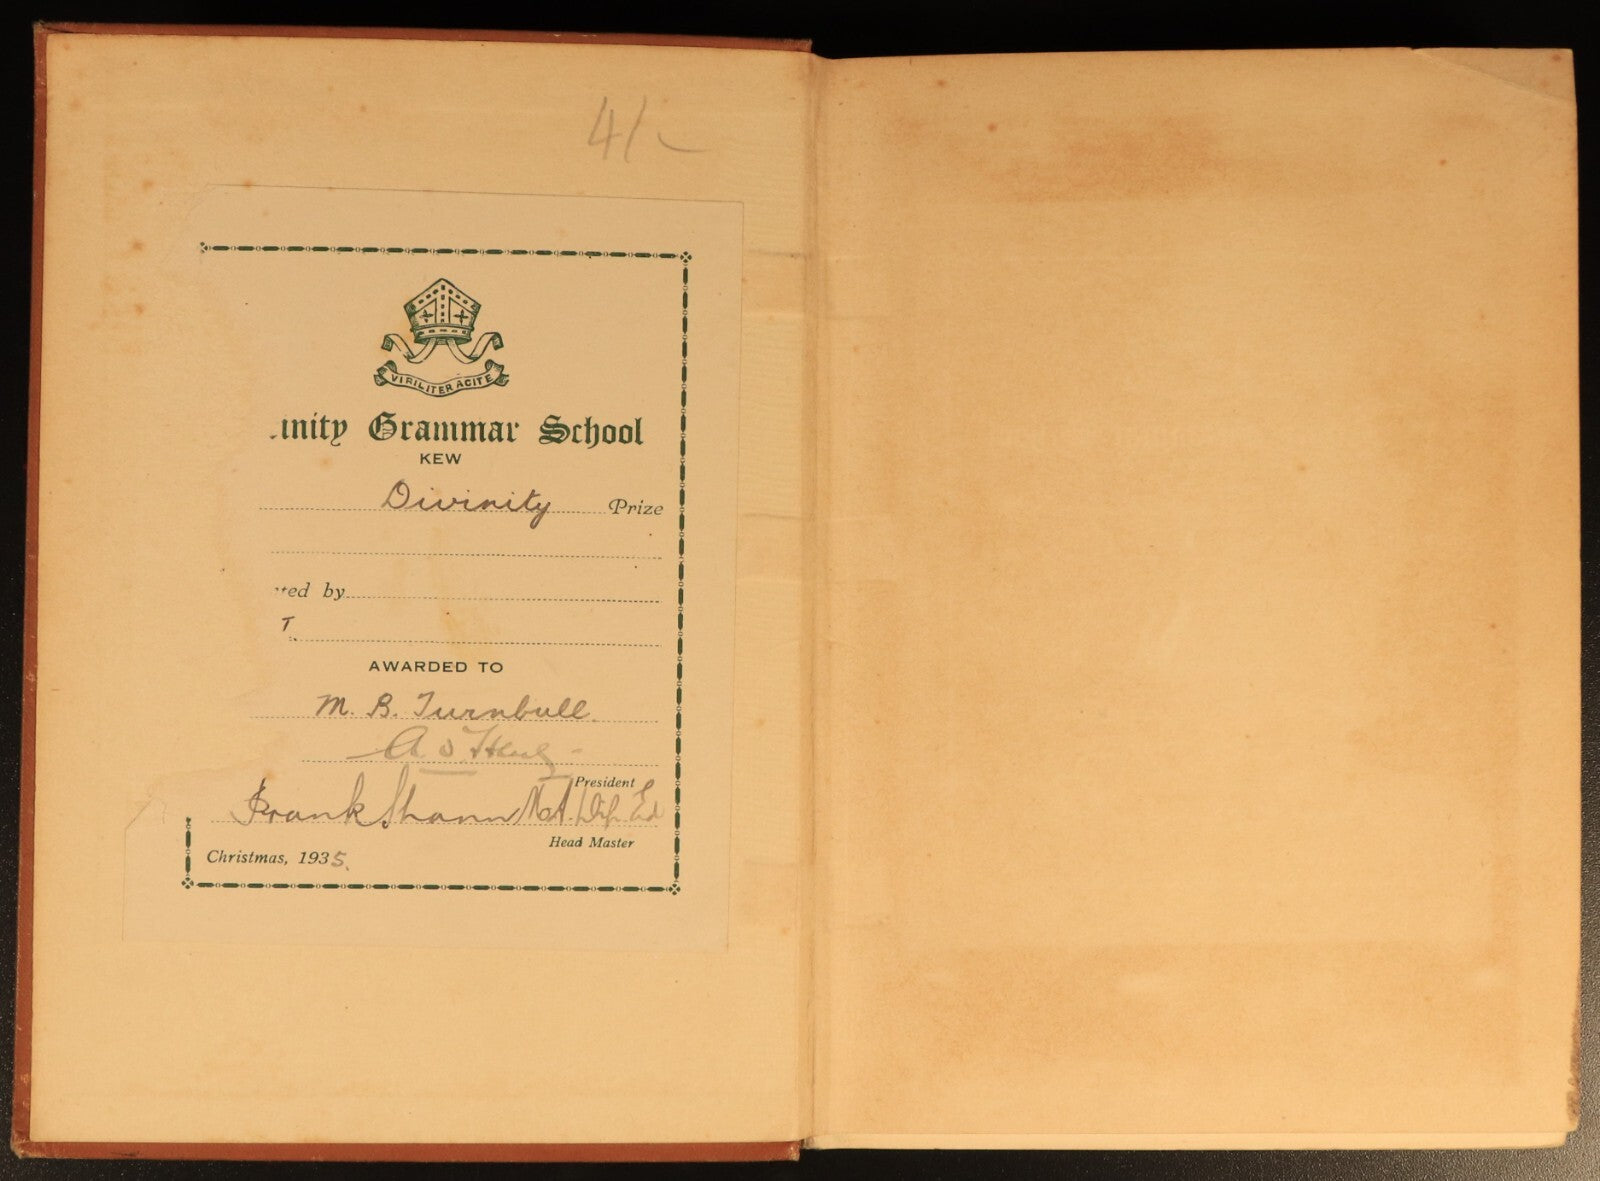 4/-
VIRILITER AGITE
inity Grammar School
KEW
Divinity Prize
ted by
T.
AWARDED TO
M. B. Turnbull.
President
Frank Shann M.A. Dip. Ed
Head Master
Christmas, 1935.